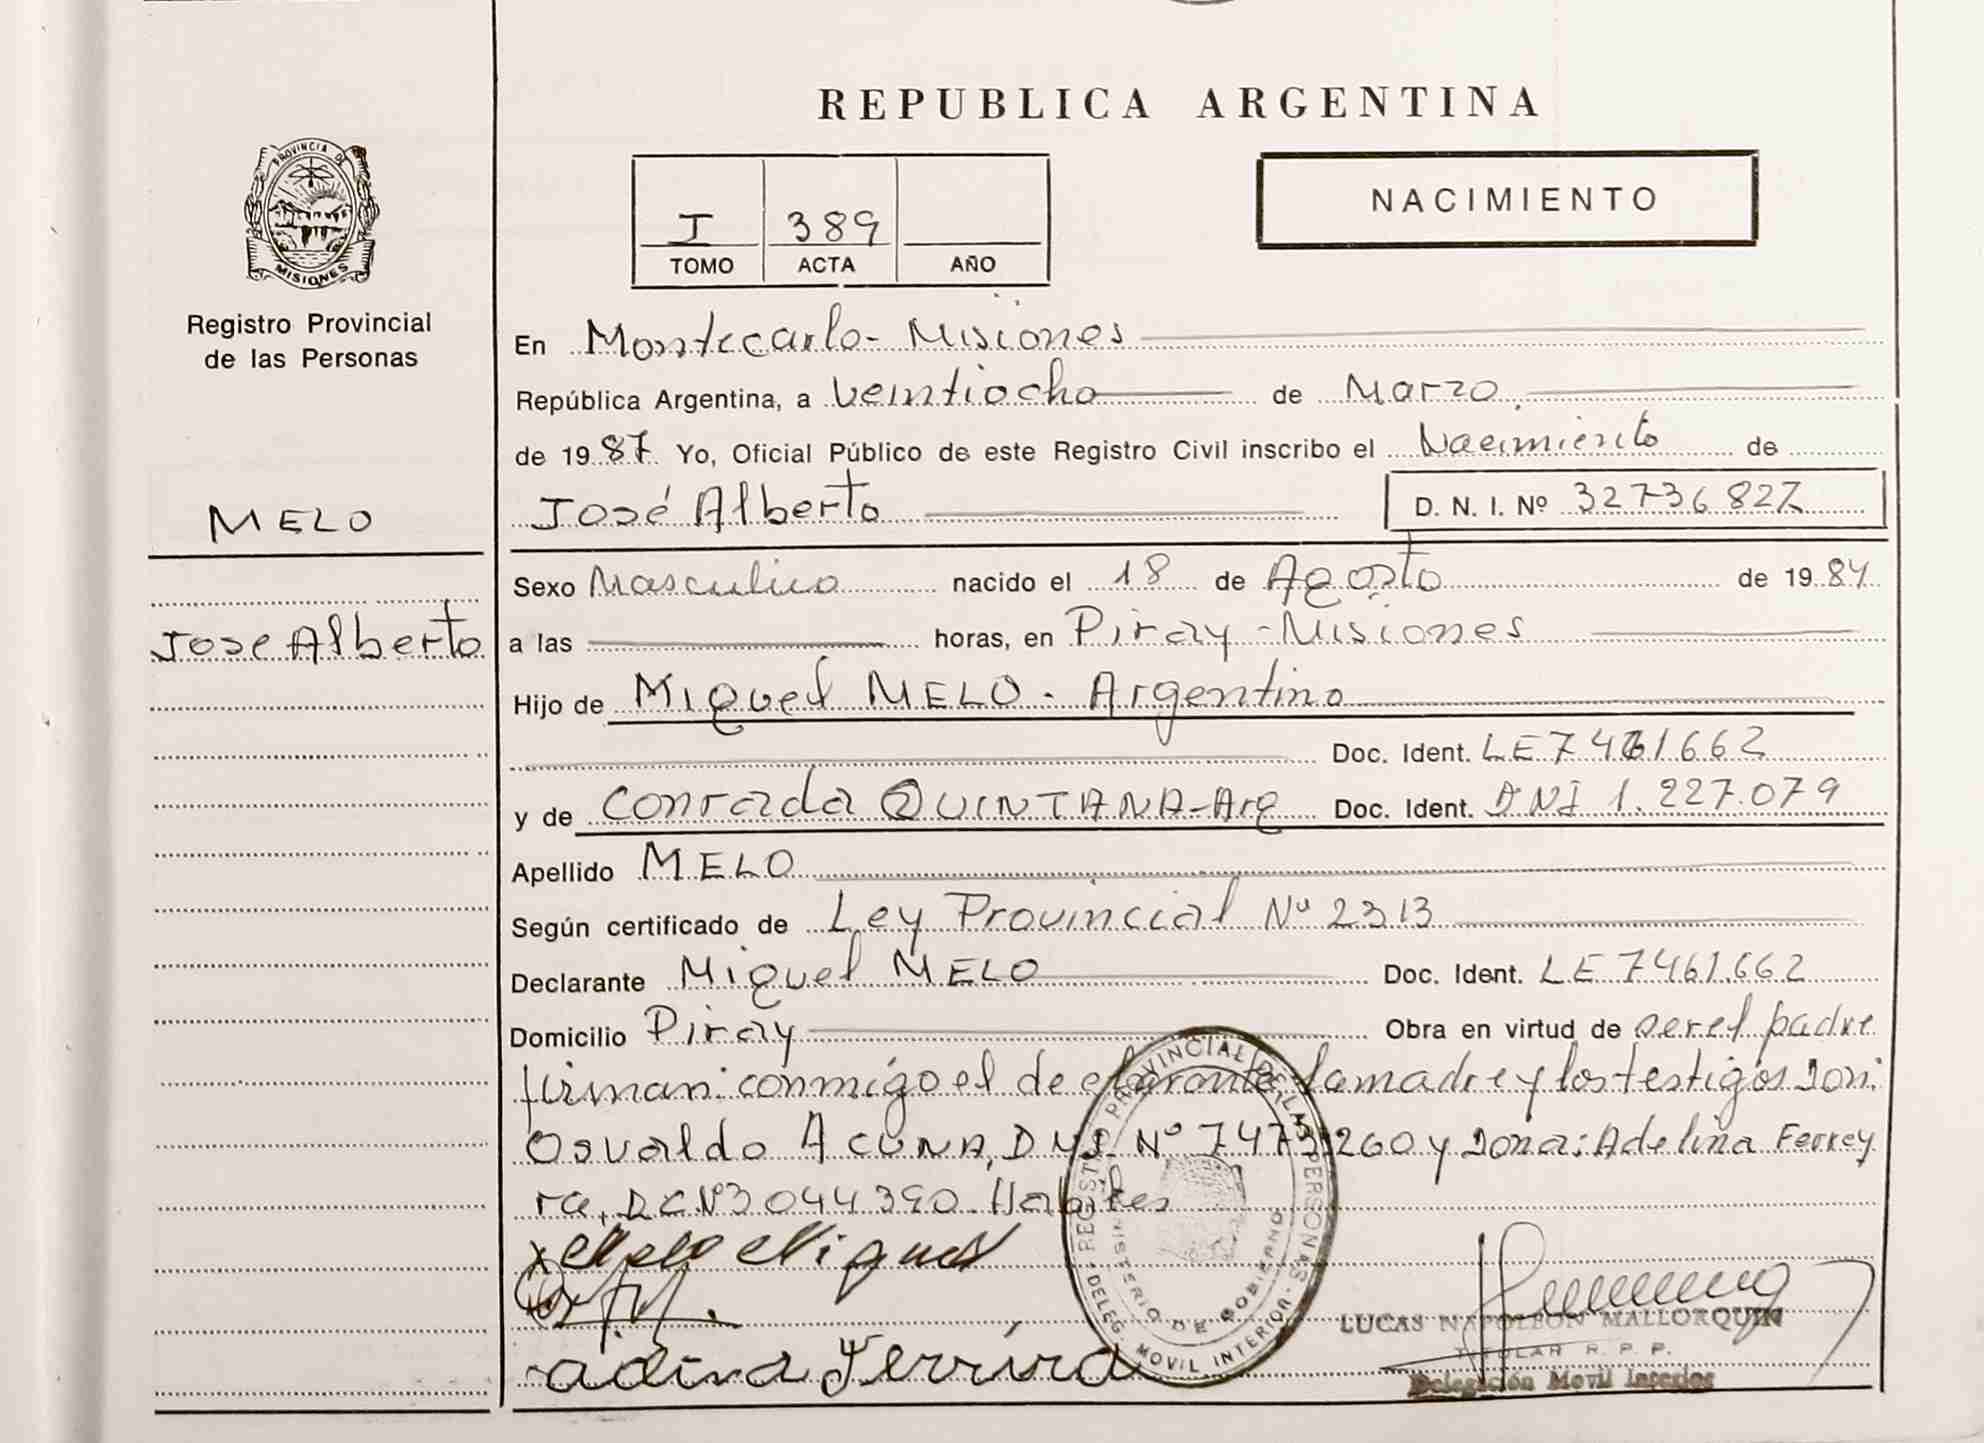 REPUBLICA ARGENTINA
PROVINCIA DE
MISIONES
Registro Provincial
de las Personas
MELO
Jose Alberto
I 389
TOMO ACTA AÑO
NACIMIENTO
En Montecarlo - Misiones
República Argentina, a veintiocho de Marzo
de 1987 Yo, Oficial Público de este Registro Civil inscribo el Nacimiento de
José Alberto D. N. I. Nº 32736827
Sexo Masculino nacido el 18 de Agosto de 1984
a las horas, en Piray - Misiones
Hijo de Miguel MELO - Argentino
Doc. Ident. LE 7461662
y de Conrada QUINTANA - Arg Doc. Ident. DNI 1.227.079
Apellido MELO
Según certificado de Ley Provincial Nº 2313
Declarante Miguel MELO Doc. Ident. LE 7461.662
Domicilio Piray Obra en virtud de ser el padre
firman: conmigo el declarante la madre y los testigos Don:
Osvaldo ACUNA, DNI Nº 7473260 y Dona: Adelina Ferrey
ra, D C Nº 3044390. Habiles
x Melo Miguel
adina Ferrira
REGISTRO PROVINCIAL DE LAS PERSONAS
MINISTERIO DE GOBIERNO
DELEG. MOVIL INTERIOR
LUCAS NAPOLEON MALLORQUIN
TITULAR R. P. P.
Delegación Movil Interior